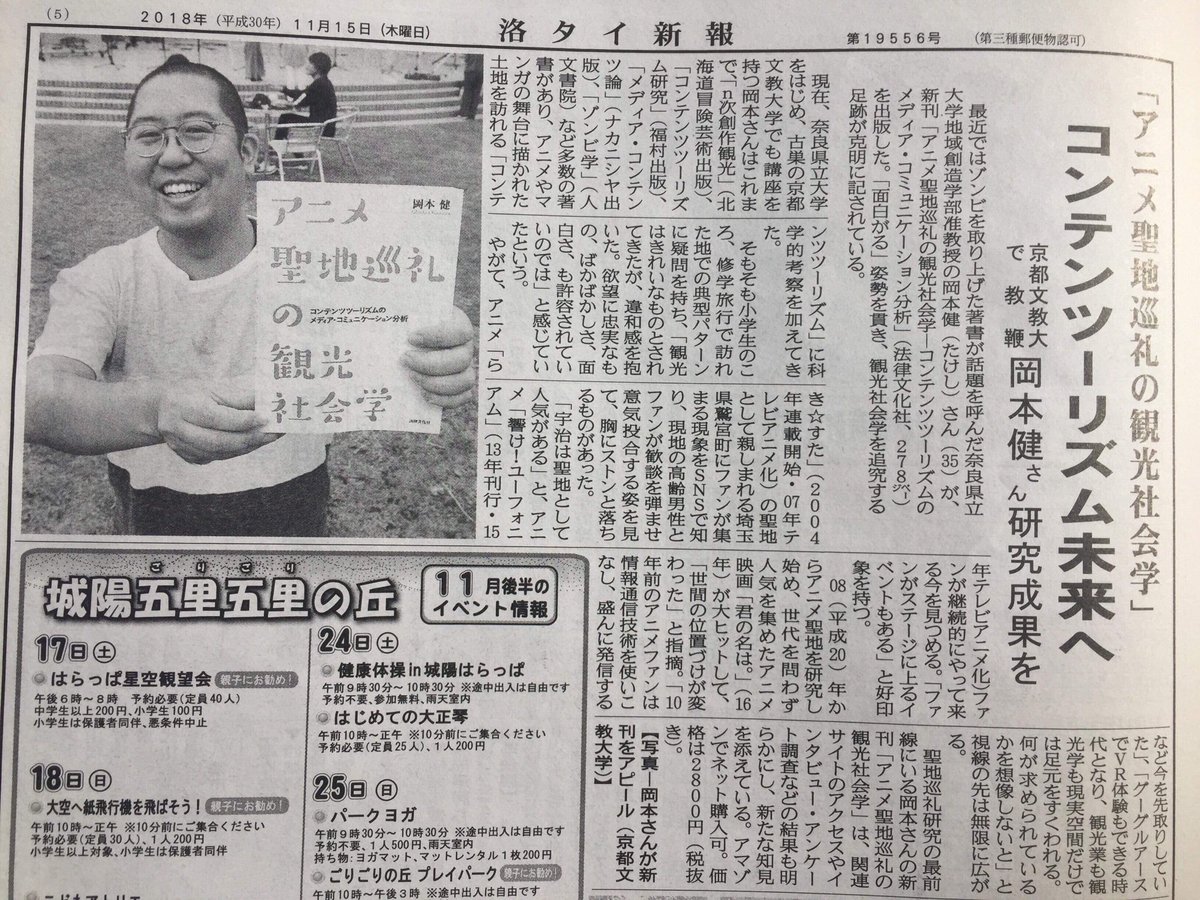 (5)
2018年(平成30年)11月15日(木曜日)
洛タイ新報
第19556号
(第三種郵便物認可)
「アニメ聖地巡礼の観光社会学」
コンテンツツーリズム未来へ
京都文教大で教鞭
岡本健さん研究成果を
最近ではゾンビを取り上げた著書が話題を呼んだ奈良県立
大学地域創造学部准教授の岡本健(たけし)さん(35)が、
新刊「アニメ聖地巡礼の観光社会学―コンテンツツーリズムの
メディア・コミュニケーション分析」(法律文化社、278㌻)
を出版した。「面白がる」姿勢を貫き、観光社会学を追究する
足跡が克明に記されている。
現在、奈良県立大学
をはじめ、古巣の京都
文教大学でも講座を
持つ岡本さんはこれま
で、「n次創作観光」(北
海道冒険芸術出版)、
「コンテンツツーリズ
ム研究」(福村出版)、
「メディア・コンテン
ツ論」(ナカニシヤ出
版)、「ゾンビ学」(人
文書院)など多数の著
書があり、アニメやマ
ンガの舞台に描かれた
土地を訪れる「コンテ
ンツツーリズム」に科
学的考察を加えてき
た。
そもそも小学生のこ
ろ、修学旅行で訪れ
た地での典型パターン
に疑問を持ち、「観光
はきれいなものとされ
てきたが、違和感を抱
いた。欲望に忠実なも
の、ばかばかしさ、面
白さ、も許容されてい
いのでは」と感じてい
たという。
やがて、アニメ「ら
き☆すた」(2004
年連載開始・07年テ
レビアニメ化)の聖地
として親しまれる埼玉
県鷲宮町にファンが集
まる現象をSNSで知
り、現地の高齢男性と
ファンが歓談を弾ませ
意気投合する姿を見
て、胸にストンと落ち
るものがあった。
「宇治は聖地として
人気がある」と、アニ
メ「響け!ユーフォニ
アム」(13年刊行・15
年テレビアニメ化)ファ
ンが継続的にやって来
る今を見つめる。「ファ
ンがステージに上るイ
ベントもある」と好印
象を持つ。
08(平成20)年か
らアニメ聖地を研究し
始め、世代を問わず
人気を集めたアニメ
映画「君の名は。」(16
年)が大ヒットして、
「世間の位置づけが変
わった」と指摘。「10
年前のアニメファンは
情報通信技術を使いこ
なし、盛んに発信する
など今を先取りしてい
た」、「グーグルアース
でVR体験もできる時
代となり、観光業も観
光学も現実空間だけで
は足元をすくわれる。
何が求められている
かを想像しないと」と
視線の先は無限に広が
る。
聖地巡礼研究の最前
線にいる岡本さんの新
刊「アニメ聖地巡礼の
観光社会学」は、関連
サイトのアクセスやイ
ンタビュー・アンケー
ト調査などの結果も明
らかにし、新たな知見
を添えている。アマゾ
ンでネット購入可。価
格は2800円(税抜
き)。
【写真=岡本さんが新
刊をアピール(京都文
教大学)】
岡本 健
アニメ
聖地巡礼
の
コンテンツツーリズムの
メディア・コミュニケーション分析
観光
社会学
ごりごり
城陽五里五里の丘
11月後半の
イベント情報
17日(土)
はらっぱ星空観望会 親子にお勧め!
午後6時~8時 予約必要(定員40人)
中学生以上200円、小学生100円
小学生は保護者同伴、悪条件中止
18日(日)
大空へ紙飛行機を飛ばそう! 親子にお勧め!
午前10時~正午 ※10分前にご集合ください
予約必要(定員30人)、1人200円
小学生以上対象、小学生は保護者同伴
24日(土)
健康体操in城陽はらっぱ
午前9時30分~10時30分 ※途中出入は自由です
予約不要、参加無料、雨天室内
はじめての大正琴
午前10時~正午 ※10分前にご集合ください
予約必要(定員25人)、1人200円
25日(日)
パークヨガ
午前9時30分~10時30分 ※途中出入は自由です
予約不要、1人500円、雨天室内
持ち物:ヨガマット、マットレンタル1枚200円
ごりごりの丘 プレイパーク 親子にお勧め!
午前10時~午後3時 ※途中出入は自由です